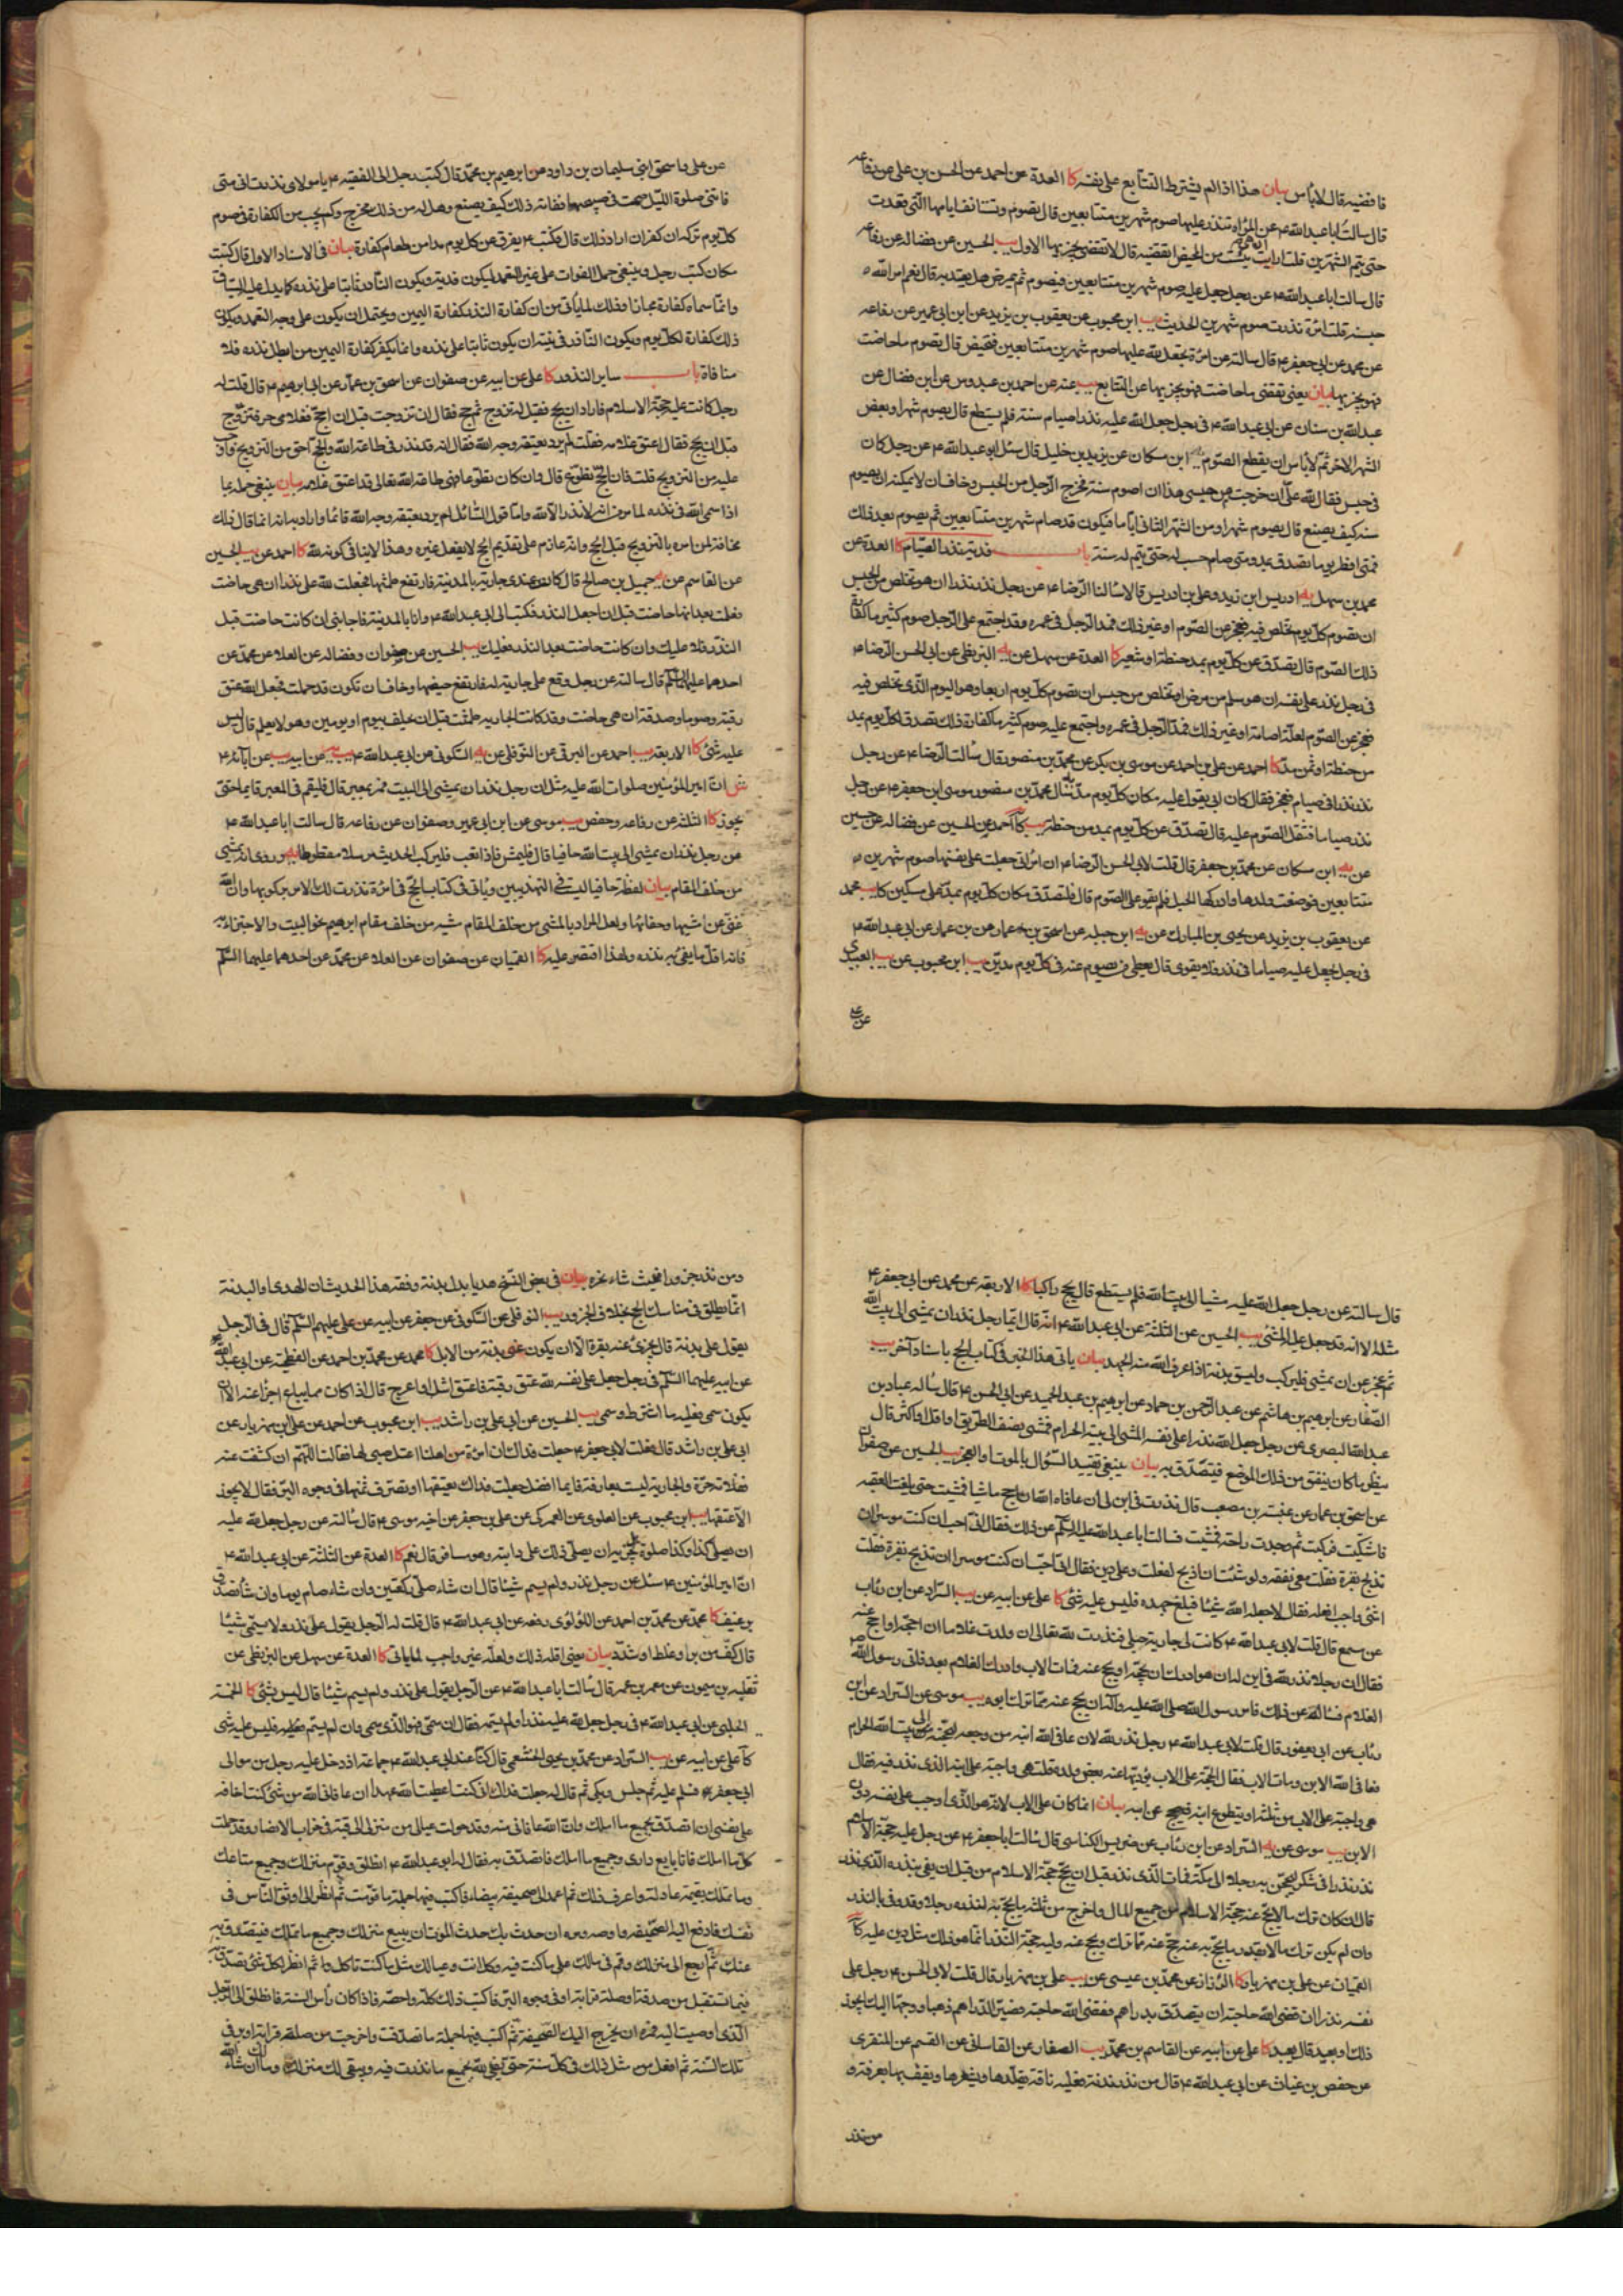 فاقضيه قال لا بأس بيان هذا اذا لم يشترط التتابع على نفسه كا العدة عن احمد عن الحسن بن على عن رفاعه
قال سالت ابا عبد الله ع عن المراة تنذر عليها صوم شهرين متتابعين قال تصوم وتستانف ايامها التى قعدت
حتى تتم الشهرين قلت ارايت ان هى يئست من الحيض اتقضيه قال لا تقضى يجزيها الاول يب الحسين عن فضاله عن رفاعه
قال سالت ابا عبد الله ع عن رجل جعل عليه صوم شهرين متتابعين فيصوم ثم يمرض هل يعتد به قال نعم امر الله
حبسه قلت امرأة نذرت صوم شهرين الحديث يب ابن محبوب عن يعقوب بن يزيد عن ابن ابى عمير عن رفاعه
عن محمد عن ابى جعفر ع قال سالته عن امرأة تجعل لله عليها صوم شهرين متتابعين فتحيض قال تصوم ما حاضت
فهو يجزيها بيان يعنى تقضى ما حاضت فهو يجزيها عن التتابع يب عنه عن احمد بن عبدوس عن ابن فضال عن
عبد الله بن سنان عن ابى عبد الله ع فى رجل جعل الله عليه نذرا صيام سنة فلم يستطع قال يصوم شهرا وبعض
الشهر الاخر ثم لا بأس ان يقطع الصوم يه ابن مسكان عن يزيد بن خليل قال سئل ابو عبد الله ع عن رجل كان
فى حبس فقال لله على ان خرجت من حبسى هذا ان اصوم سنة فخرج الرجل من الحبس وخاف ان لا يمكنه ان يصوم
سنة كيف يصنع قال يصوم شهرا ومن الشهر الثانى اياما فيكون قد صام شهرين متتابعين ثم يصوم بعد ذلك
فمتى افطر يوما تصدق بمد ومتى صام حسب له حتى يتم له سنة باب فدية نذر الصيام كا العدة عن
محمد بن سهل يه ادريس ابن زيد وعلى بن ادريس قالا سالنا الرضا ع عن رجل نذر نذرا ان هو تخلص من الحبس
ان يصوم كل يوم تخلص فيه فعجز عن الصوم او غير ذلك فمد الرجل فى عمره وقد اجتمع على الرجل صوم كثير ما كفارة
ذلك الصوم قال تصدق عن كل يوم بمد حنطة او شعير كا العدة عن سهل عن يه البزنطى عن ابى الحسن الرضا ع
فى رجل نذر على نفسه ان هو سلم من مرض او تخلص من حبس ان يصوم كل يوم اربعا وهو اليوم الذى تخلص فيه
فعجز عن الصوم لعلة اصابته او غير ذلك فمد الرجل فى عمره واجتمع عليه صوم كثير ما كفارة ذلك تصدق لكل يوم بمد
من حنطة او ثمن مد كا احمد عن على بن احمد عن موسى بن بكر عن محمد بن منصور قال سالت الرضا ع عن رجل
نذر نذرا فى صيام فعجز فقال كان ابى يقول عليه مكان كل يوم مد يه سأل محمد بن منصور موسى ابن جعفر ع عن رجل
نذر صياما فثقل الصوم عليه قال تصدق عن كل يوم بمد من حنطة يب كا احمد عن الحسين عن فضاله عن حسين
عن يه ابن مسكان عن محمد بن جعفر قال قلت لابى الحسن الرضا ع ان امرأتى جعلت على نفسها صوم شهرين
متتابعين فوضعت ولدها وادركها الحبل فلم تقو على الصوم قال فلتصدق مكان كل يوم بمد على مسكين كا يب محمد
عن يعقوب بن يزيد عن يحيى بن المبارك عن يه ابن جبله عن اسحق بن عمار عن ابى عبد الله ع
فى رجل يجعل عليه صياما فى نذر فلا يقوى قال يعطى من يصوم عنه فى كل يوم مدين يب ابن محبوب عن يب العبيدى
عن على
عن على واسحق ابنى سليمان بن داود عن ابرهيم بن محمد قال كتب رجل الى الفقيه ع يا مولاى نذرت انى متى
فاتتنى صلوة الليل صمت فى صبيحتها ففاته ذلك كيف يصنع وهل له من ذلك مخرج وكم يجب من الكفارة فى صوم
كل يوم تركه ان كفر ان اراد ذلك قال فكتب ع يفرق عن كل يوم مدا من طعام كفارة بيان فى الاسناد الاول قال كتبت
مكان كتب رجل وينبغى حمل الفوات على غير التعمد ليكون فدية ويكون الناذر ثابتا على نذره كما يدل عليه السياق
وانما سماه كفارة مجازا وذلك لما يأتى من ان كفارة النذر كفارة اليمين ويحتمل ان يكون على وجه التعمد ويكون
ذلك كفارة لكل يوم ويكون الناذر فى نيته ان يكون ثابتا على نذره وانما يكفر كفارة اليمين من ابطل نذره فلا
منافاة باب ساير النذور كا على عن ابيه عن صفوان عن اسحق بن عمار عن ابى ابرهيم ع قال قلت له
رجل كانت عليه حجة الاسلام فاراد ان يحج فقيل له تزوج ثم حج فقال ان تزوجت قبل ان احج فغلامى حر فتزوج
قبل ان يحج فقال اعتق غلامه فقلت لم يرد بعتقه وجه الله فقال انه قد نذر فى طاعة الله والحج احق من التزويج واوجب
عليه من التزويج قلت فان الحج تطوع قال وان كان تطوعا فهى طاعة الله تعالى قد اعتق غلامه بيان ينبغى حمله بما
اذا سمى الله فى نذره لما مر من انه لا نذر الا لله واما قول السائل لم يرد بعتقه وجه الله فانما اراد به انه انما قال ذلك
مخافة لمن امره بالتزويج قبل الحج وانه عازم على تقديم الحج لا يفعل غيره وهذا لا ينافى كونه لله كا احمد عن يب الحسين
عن القاسم عن يه جميل بن صالح قال كانت عندى جارية بالمدينة فارتفع طمثها فجعلت لله على نذرا ان هى حاضت
فعلمت بعد انها حاضت قبل ان اجعل النذر فكتبت الى ابى عبد الله ع وانا بالمدينة فاجابنى ان كانت حاضت قبل
النذر فلا عليك وان كانت حاضت بعد النذر فعليك يب الحسين عن صفوان وفضاله عن العلا عن محمد عن
احدهما عليهما السلم قال سالته عن رجل وقع على جارية له فارتفع حيضها وخاف ان تكون قد حملت فجعل لله عتق
رقبة وصوما وصدقة ان هى حاضت وقد كانت الجارية طمثت قبل ان يحلف بيوم او يومين وهو لا يعلم قال ليس
عليه شئ كا الاربعة يب احمد عن البرقى عن النوفلى عن يه السكونى عن ابى عبد الله ع يب يه عن ابيه يب عن آبائه ع
ش ان امير المؤمنين صلوات الله عليه سئل ان رجل نذر ان يمشى الى البيت فمر بمعبر قال فليقم فى المعبر قايما حتى
يجوز كا الثلثة عن رفاعه وحفص يب موسى عن ابن ابى عمير وصفوان عن رفاعه قال سالت ابا عبد الله ع
عن رجل نذر ان يمشى الى بيت الله حافيا قال فليمش فاذا تعب فليركب الحديث مرسلا مقطوعا يه وروى انه يمشى
من خلف المقام بيان لفظة حافيا ليست فى التهذيبين وياتى فى كتاب الحج فى امرأة نذرت ذلك الامر بركوبها وان الله
غنى عن مشيها وحفائها ولعل المراد بالمشى من خلف المقام مشيه من خلف مقام ابرهيم نحو البيت والاجتزاء به
فانه اقل ما يفى به نذره ولهذا اقتصر عليه كا القميان عن صفوان عن العلا عن محمد عن احدهما عليهما السلم
قال سالته عن رجل جعل لله عليه مشيا الى بيت الله فلم يستطع قال يحج راكبا كا الاربعة عن محمد عن ابى جعفر ع
مثله الا انه قد جعل عليه المشى يب الحسين عن الثلثة عن ابى عبد الله ع انه قال ايما رجل نذر ان يمشى الى بيت الله
ثم عجز عن ان يمشى فليركب وليسق بدنة اذا عرف الله منه الجهد بيان ياتى هذا الخبر فى كتاب الحج باسناد آخر يب
الصفار عن ابرهيم بن هاشم عن عبد الرحمن بن حماد عن ابرهيم بن عبد الحميد عن ابى الحسن ع قال سأله عباد بن
عبد الله البصرى عن رجل جعل الله نذرا على نفسه المشى الى بيته الحرام فمشى نصف الطريق او اقل او اكثر قال
ينظر ما كان ينفق من ذلك الموضع فيتصدق به بيان ينبغى تقييد السؤال بالموت او العجز يب الحسين عن صفوان
عن اسحق بن عمار عن عنبسة بن مصعب قال نذرت فى ابن لى ان عافاه الله ان احج ماشيا فمشيت حتى بلغت العقبه
فاشتكيت فركبت ثم وجدت راحة فمشيت فسالت ابا عبد الله عليه السلم عن ذلك فقال انى احب ان كنت موسرا ان
تذبح بقرة فقلت معى نفقه ولو شئت ان اذبح لفعلت وعلى دين فقال انى احب ان كنت موسرا ان تذبح بقرة فقلت
اشئ واجب افعله فقال لا من جعل لله شيئا فبلغ جهده فليس عليه شئ كا على عن ابيه عن يب السراد عن ابن رئاب
عن مسمع قال قلت لابى عبد الله ع كانت لى جارية حبلى فنذرت لله تعالى ان ولدت غلاما ان احجه او احج عنه
فقال ان رجلا نذر لله فى ابن له ان هو ادرك ان يحجه او يحج عنه فمات الاب وادرك الغلام بعد فاتى رسول الله ص
الغلام فسأله عن ذلك فامر رسول الله صلى الله عليه وآله ان يحج عنه مما ترك ابوه يب موسى عن السراد عن ابن
رئاب عن ابن ابى يعفور قال قلت لابى عبد الله ع رجل نذر لله لان عافى الله ابنه من وجعه ليحجنه الى بيت الله الحرام
فعافى الله الابن ومات الاب فقال الحجة على الاب يؤديها عنه بعض ولده قلت هى واجبة على ابنه الذى نذر فيه فقال
هى واجبة على الاب من ثلثه او يتطوع ابنه فيحج عن ابيه بيان انما كان على الاب لانه هو الذى اوجب على نفسه دون
الابن يب موسى عن يه السراد عن ابن رئاب عن ضريس الكناسى قال سالت ابا جعفر ع عن رجل عليه حجة الاسلام
نذر نذرا فى شكر ليحجن به رجلا الى مكة فمات الذى نذر قبل ان يحج حجة الاسلام من قبل ان يفى بنذره الذى نذر
قال ان كان ترك مالا يحج عنه حجة الاسلام من جميع المال واخرج من ثلثه ما يحج به لنذره رجلا وقد وفى بالنذر
وان لم يكن ترك مالا بقدر ما يحج به عنه حج عنه مما ترك ويحج عنه وليه حجة النذر انما هو ذلك مثل دين عليه كا
القميان عن على بن مهزيار كا الرزاز عن محمد بن عيسى عن يب على بن مهزيار قال قلت لابى الحسن ع رجل على
نفسه نذرا ان قضى الله حاجته ان يتصدق بدراهم فقضى الله حاجته فصير الدراهم ذهبا ووجهها اليك ايجوز
ذلك او يعيد قال يعيد كا على عن ابيه عن القاسم بن محمد يب الصفار عن القاسانى عن القسم عن المنقرى
عن حفص بن غياث عن ابى عبد الله ع قال من نذر بدنة فعليه ناقة يقلدها ويشعرها ويقف بها بعرفة و
من نذر
ومن نذر جزورا فحيث شاء نحره بيان فى بعض النسخ هديا بدل بدنة وفقه هذا الحديث ان الهدى والبدنة
انما يطلق فى مناسك الحج بخلاف الجزور يب النوفلى عن السكونى عن جعفر عن ابيه عن على عليهم السلم قال فى الرجل
يقول على بدنة قال يجزى عنه بقرة الا ان يكون عنى بدنة من الابل كا محمد عن محمد بن احمد عن الفطحية عن ابى عبد الله
عن ابيه عليهما السلم فى رجل جعل على نفسه لله عتق رقبة فاعتق اشل او اعرج قال اذا كان مما يباع اجزأ عنه الا ان
يكون سمى فعليه ما اشترط وسمى يب الحسين عن ابى على بن راشد يب ابن محبوب عن احمد عن على بن مهزيار عن
ابى على بن راشد قال قلت لابى جعفر ع جعلت فداك ان امرأة من اهلنا اعتل صبى لها فقالت اللهم ان كشفت عنه
ففلانة حرة والجارية ليست بعارفة فايما افضل جعلت فداك تعتقها او تصرف ثمنها فى وجوه البر فقال لا يجوز
الا عتقها يب ابن محبوب عن العلوى عن العمركى عن على بن جعفر عن اخيه موسى ع قال سالته عن رجل جعل لله عليه
ان يصلى كذا وكذا صلوة هل يجزيه ان يصلى ذلك على دابته وهو مسافر قال نعم كا العدة عن الثلثة عن ابى عبد الله ع
ان امير المؤمنين ع سئل عن رجل نذر ولم يسم شيئا قال ان شاء صلى ركعتين وان شاء صام يوما وان شاء تصدق
برغيف كا محمد عن محمد بن احمد عن اللؤلوى رفعه عن ابى عبد الله ع قال قلت له الرجل يقول على نذر ولا يسمى شيئا
قال كف من بر او غلظ او شدد بيان يعنى اقله ذلك ولعله غير واجب لما ياتى كا العدة عن سهل عن البزنطى عن
ثعلبه بن ميمون عن معمر بن عمر قال سالت ابا عبد الله ع عن الرجل يقول على نذر ولم يسم شيئا قال ليس بشئ كا الخمسة
الحلبى عن ابى عبد الله ع فى رجل جعل لله عليه نذرا ولم يسمه فقال ان سمى فهو الذى سمى وان لم يسم فليس عليه شئ
كا على عن ابيه عن يب السراد عن محمد بن يحيى الخثعمى قال كنا عند ابى عبد الله ع جماعة اذ دخل عليه رجل من موالى
ابى جعفر ع فسلم عليه ثم جلس وبكى ثم قال له جعلت فداك انى كنت اعطيت الله عهدا ان عافانى الله من شئ كنت اخافه
على نفسى ان اتصدق بجميع ما املك وان الله عافانى منه وقد حولت عيالى من منزلى الى قبة فى خراب الانصار وقد حملت
كل ما املك فانا بايع دارى وجميع ما املك فاتصدق به فقال له ابو عبد الله ع انطلق وقوم منزلك وجميع متاعك
وما تملك بقيمة عادلة واعرف ذلك ثم اعمد الى صحيفة بيضاء فاكتب فيها جملة ما قومت ثم انظر الى اوثق الناس فى
نفسك فادفع اليه الصحيفة واوصه ومره ان حدث بك حدث الموت ان يبيع منزلك وجميع ما تملك فيتصدق به
عنك ثم ارجع الى منزلك وقم فى مالك على ما كنت فيه وكل انت وعيالك مثل ما كنت تاكل ثم انظر كل شئ تصدق به
فيما تستقبل من صدقة او صلة قرابة او فى وجوه البر فاكتب ذلك كله واحصه فاذا كان رأس السنة فانطلق الى الرجل
الذى اوصيت اليه فمره ان يخرج اليك الصحيفة ثم اكتب فيها جملة ما تصدقت واخرجت من صلة قرابة او بر فى
تلك السنة ثم افعل مثل ذلك فى كل سنة حتى تفى لله بجميع ما نذرت فيه ويبقى لك منزلك ومالك ان شاء الله